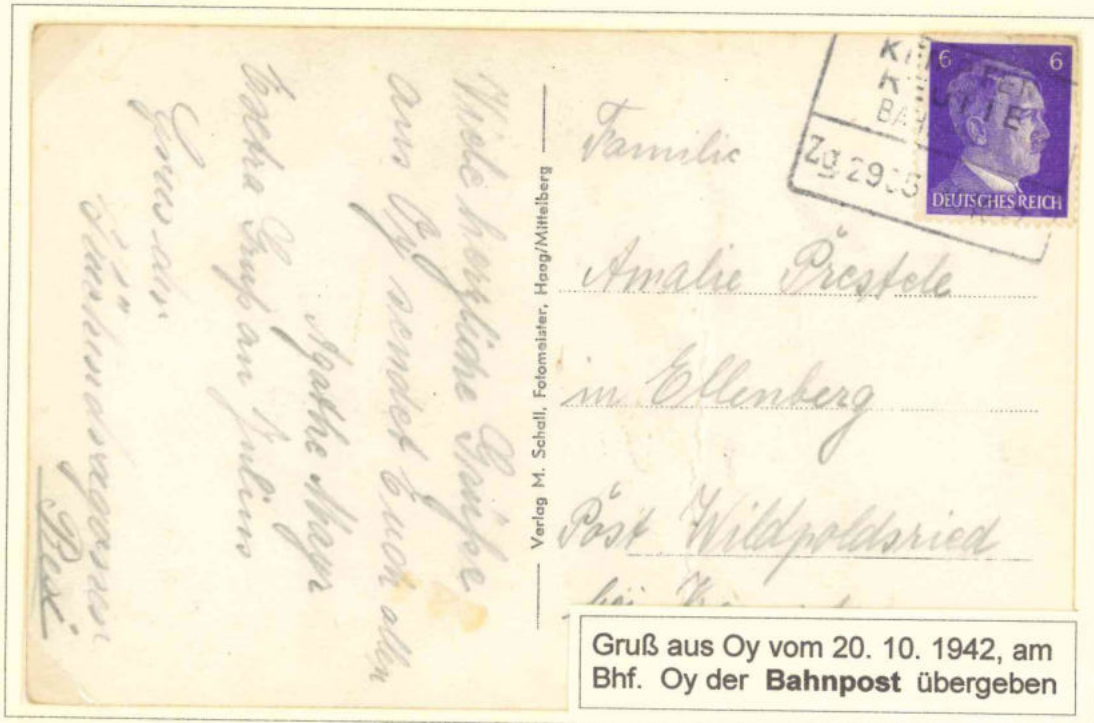 Viele herzliche Grüße
aus Oy sendet Euch allen
Agathe Mayr
Extra Gruß an Julius
Verlag M. Schall, Fotomeister, Haag/Mittelberg
6 6
DEUTSCHES REICH
Familie
Amalie Prestele
in Ellenberg
Post Wildpoldsried
bei
Gruß aus Oy vom 20. 10. 1942, am
Bhf. Oy der Bahnpost übergeben